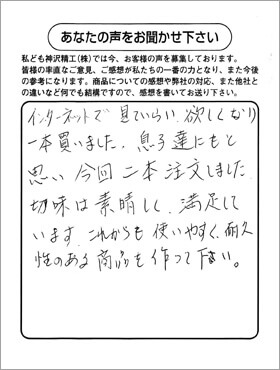 あなたの声をお聞かせ下さい
私ども神沢精工(株)では今、お客様の声を募集しております。
皆様の率直なご意見、ご感想が私たちの一番の力となり、また今後
の参考になります。商品についての感想や弊社の対応、また他社と
の違いなど何でも結構ですので、感想を書いてお送り下さい。
インターネットで見ていらい、欲しくなり
一本買いました。息子達にもと
思い今回二本注文しました
切味は素晴しく、満足して
います。これからも使いやすく、耐久
性のある商品を作って下さい。